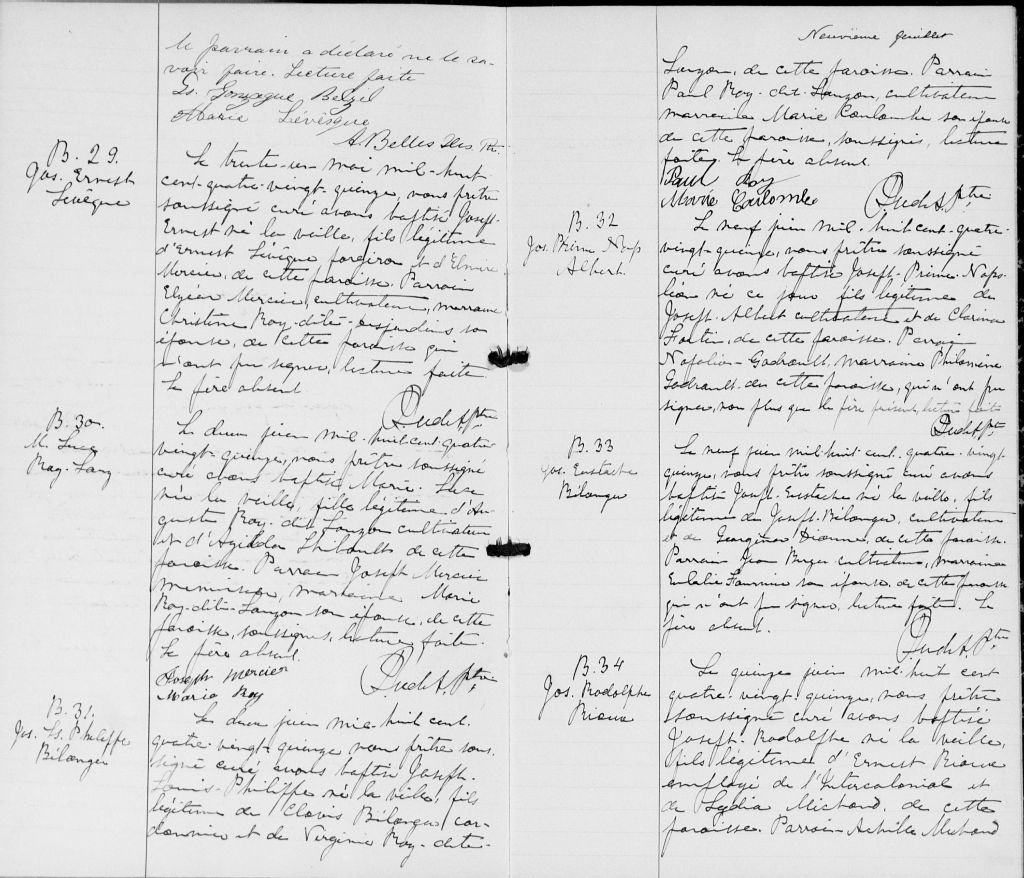 le parrain a déclaré ne le sa-
voir faire. Lecture faite
Ls. Gonzague Belzel
Marie Lévêsque
A. Belles Iles Ptre
B. 29.
Jos. Ernest
Lévêque
Le trente-un mai mil-huit-
cent-quatre-vingt-quinze, nous prêtre
soussigné curé avons baptisé Joseph-
Ernest né la veille, fils légitime
d'Ernest Lévêque forgeron et d'Elmire
Mercier, de cette paroisse. Parrain
Elzéar Mercier, cultivateur, marraine
Christine Roy-dite-Desjardins son
épouse, de cette paroisse qui
n'ont pu signer, lecture faite.
Le père absent.
Ptre
B. 30.
M. Luce
Roy-Lauz
Le deux juin mil-huit-cent-quatre-
vingt-quinze, nous prêtre soussigné
curé avons baptisé Marie-Luce
née la veille, fille légitime d'Au-
guste Roy-dit-Lauzon cultivateur
et d' Thibault de cette
paroisse. Parrain Joseph Mercier
menuisier, marraine Marie
Roy-dite-Lauzon son épouse, de cette
paroisse, soussignés, lecture faite.
Le père absent.
Joseph Mercier
Marie Roy
Ptre
B. 31.
Jos. Ls. Philippe
Bélanger
Le deux juin mil-huit cent-
quatre-vingt-quinze nous prêtre sous-
signé curé avons baptisé Joseph-
Louis-Philippe né la veille, fils
légitime de Clovis Bélanger cor-
donnier et de Virginie Roy-dite-
Neuvième feuillet
Lauzon, de cette paroisse. Parrain
Paul Roy-dit-Lauzon, cultivateur
marraine Marie Coulombe son épouse
de cette paroisse, soussignés, lecture
faite. Le père absent.
Paul Roy
Marie Coulombe
Ptre
B. 32
Jos. Prime Nap.
Albert.
Le neuf juin mil-huit-cent-quatre-
vingt-quinze, nous prêtre soussigné
curé avons baptisé Joseph-Prime-Napo-
léon né ce jour fils légitime de
Joseph Albert cultivateur et de Clarina
Fortin, de cette paroisse. Parrain
Napoléon Godrault, marraine Philomène
Godrault de cette paroisse, qui n'ont pu
signer, non plus que le père présent, lecture faite
Ptre
B. 33
Jos. Eustache
Bélanger
Le neuf juin mil-huit-cent-quatre-vingt-
quinze, nous prêtre soussigné curé avons
baptisé Joseph-Eustache né la veille, fils
légitime de Joseph-Bélanger, cultivateur
et de Georgina Dionne, de cette paroisse.
Parrain Jean cultivateur, marraine
Eulalie Fournier son épouse, de cette paroisse
qui n'ont pu signer, lecture faite. Le
père absent.
Ptre
B. 34
Jos. Rodolphe
Rioux
Le quinze juin mil-huit cent
quatre-vingt-quinze, nous prêtre
soussigné curé avons baptisé
Joseph-Rodolphe né la veille,
fils légitime d'Ernest Rioux
employé de l'Intercolonial et
de Lydia Michaud, de cette
paroisse. Parrain Achille Michaud